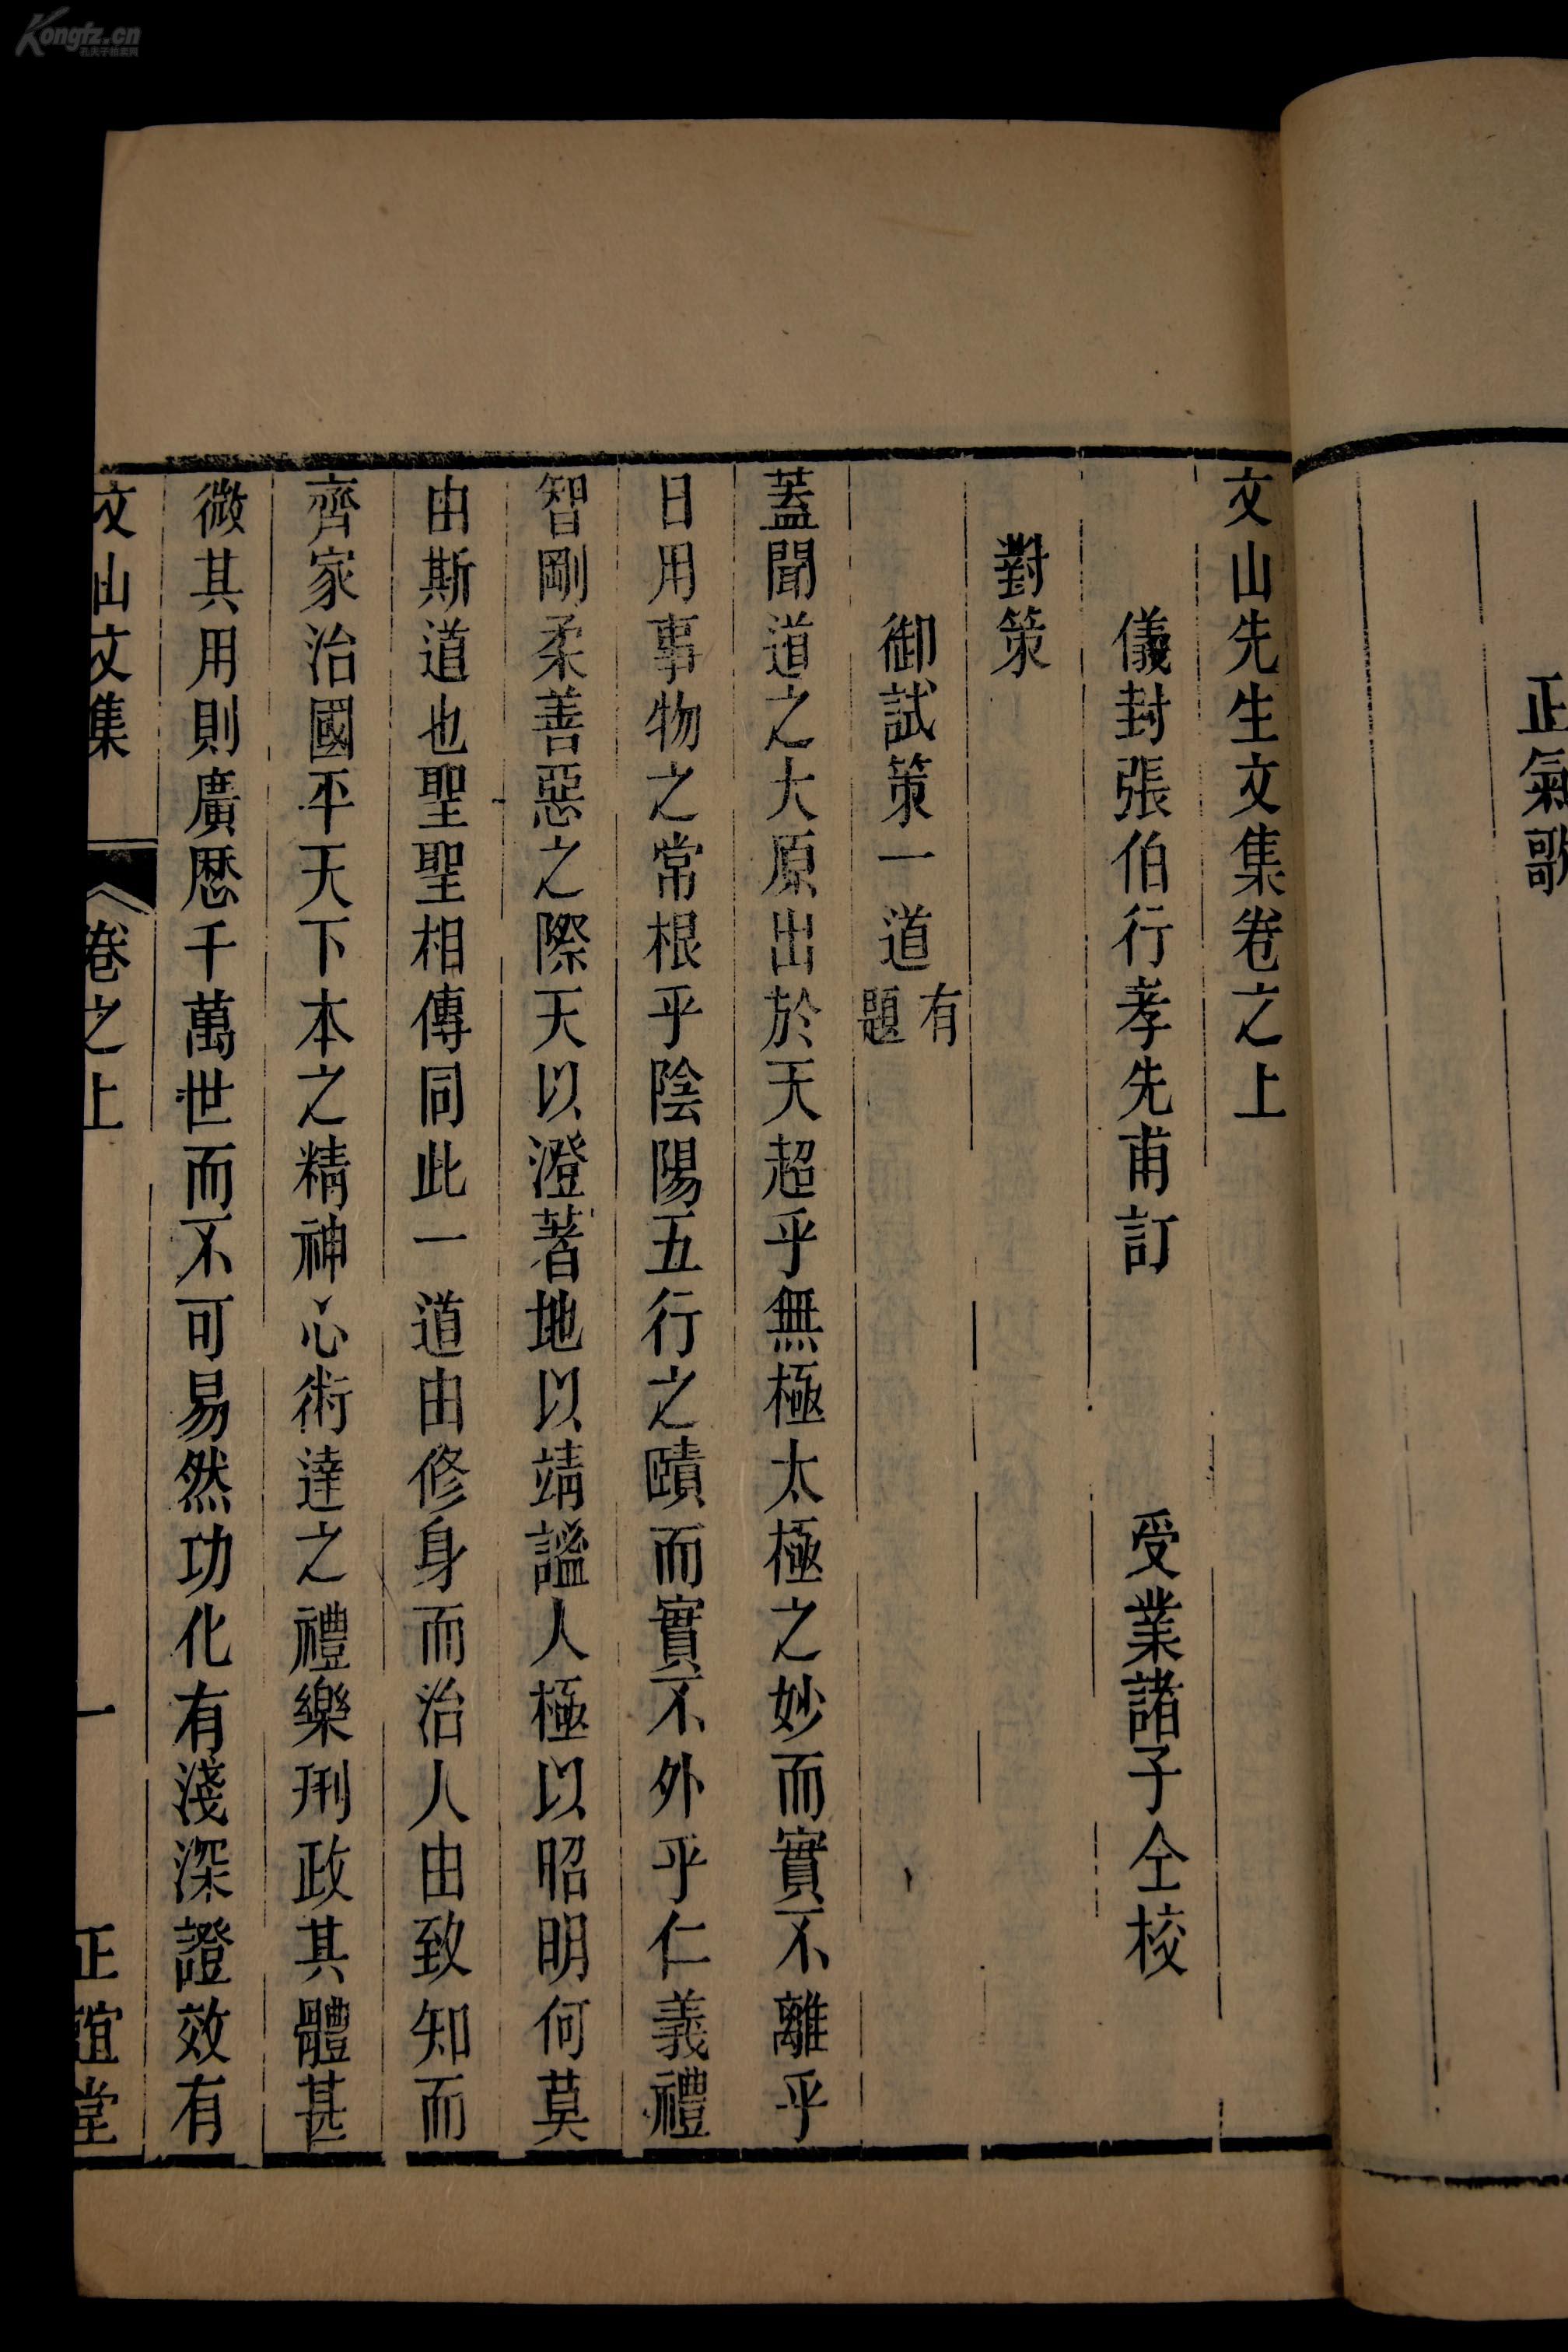 Kongfz.cn
孔夫子拍卖网
正氣歌
文山先生文集卷之上
儀封張伯行孝先甫訂 受業諸子仝校
對策
御試策一道有題
蓋聞道之大原出於天超乎無極太極之妙而實不離乎
日用事物之常根乎陰陽五行之賾而實不外乎仁義禮
智剛柔善惡之際天以澄著地以靖謐人極以昭明何莫
由斯道也聖聖相傳同此一道由修身而治人由致知而
齊家治國平天下本之精神心術達之禮樂刑政其體甚
微其用則廣歷千萬世而不可易然功化有淺深證效有
文山文集 卷之上 一 正誼堂